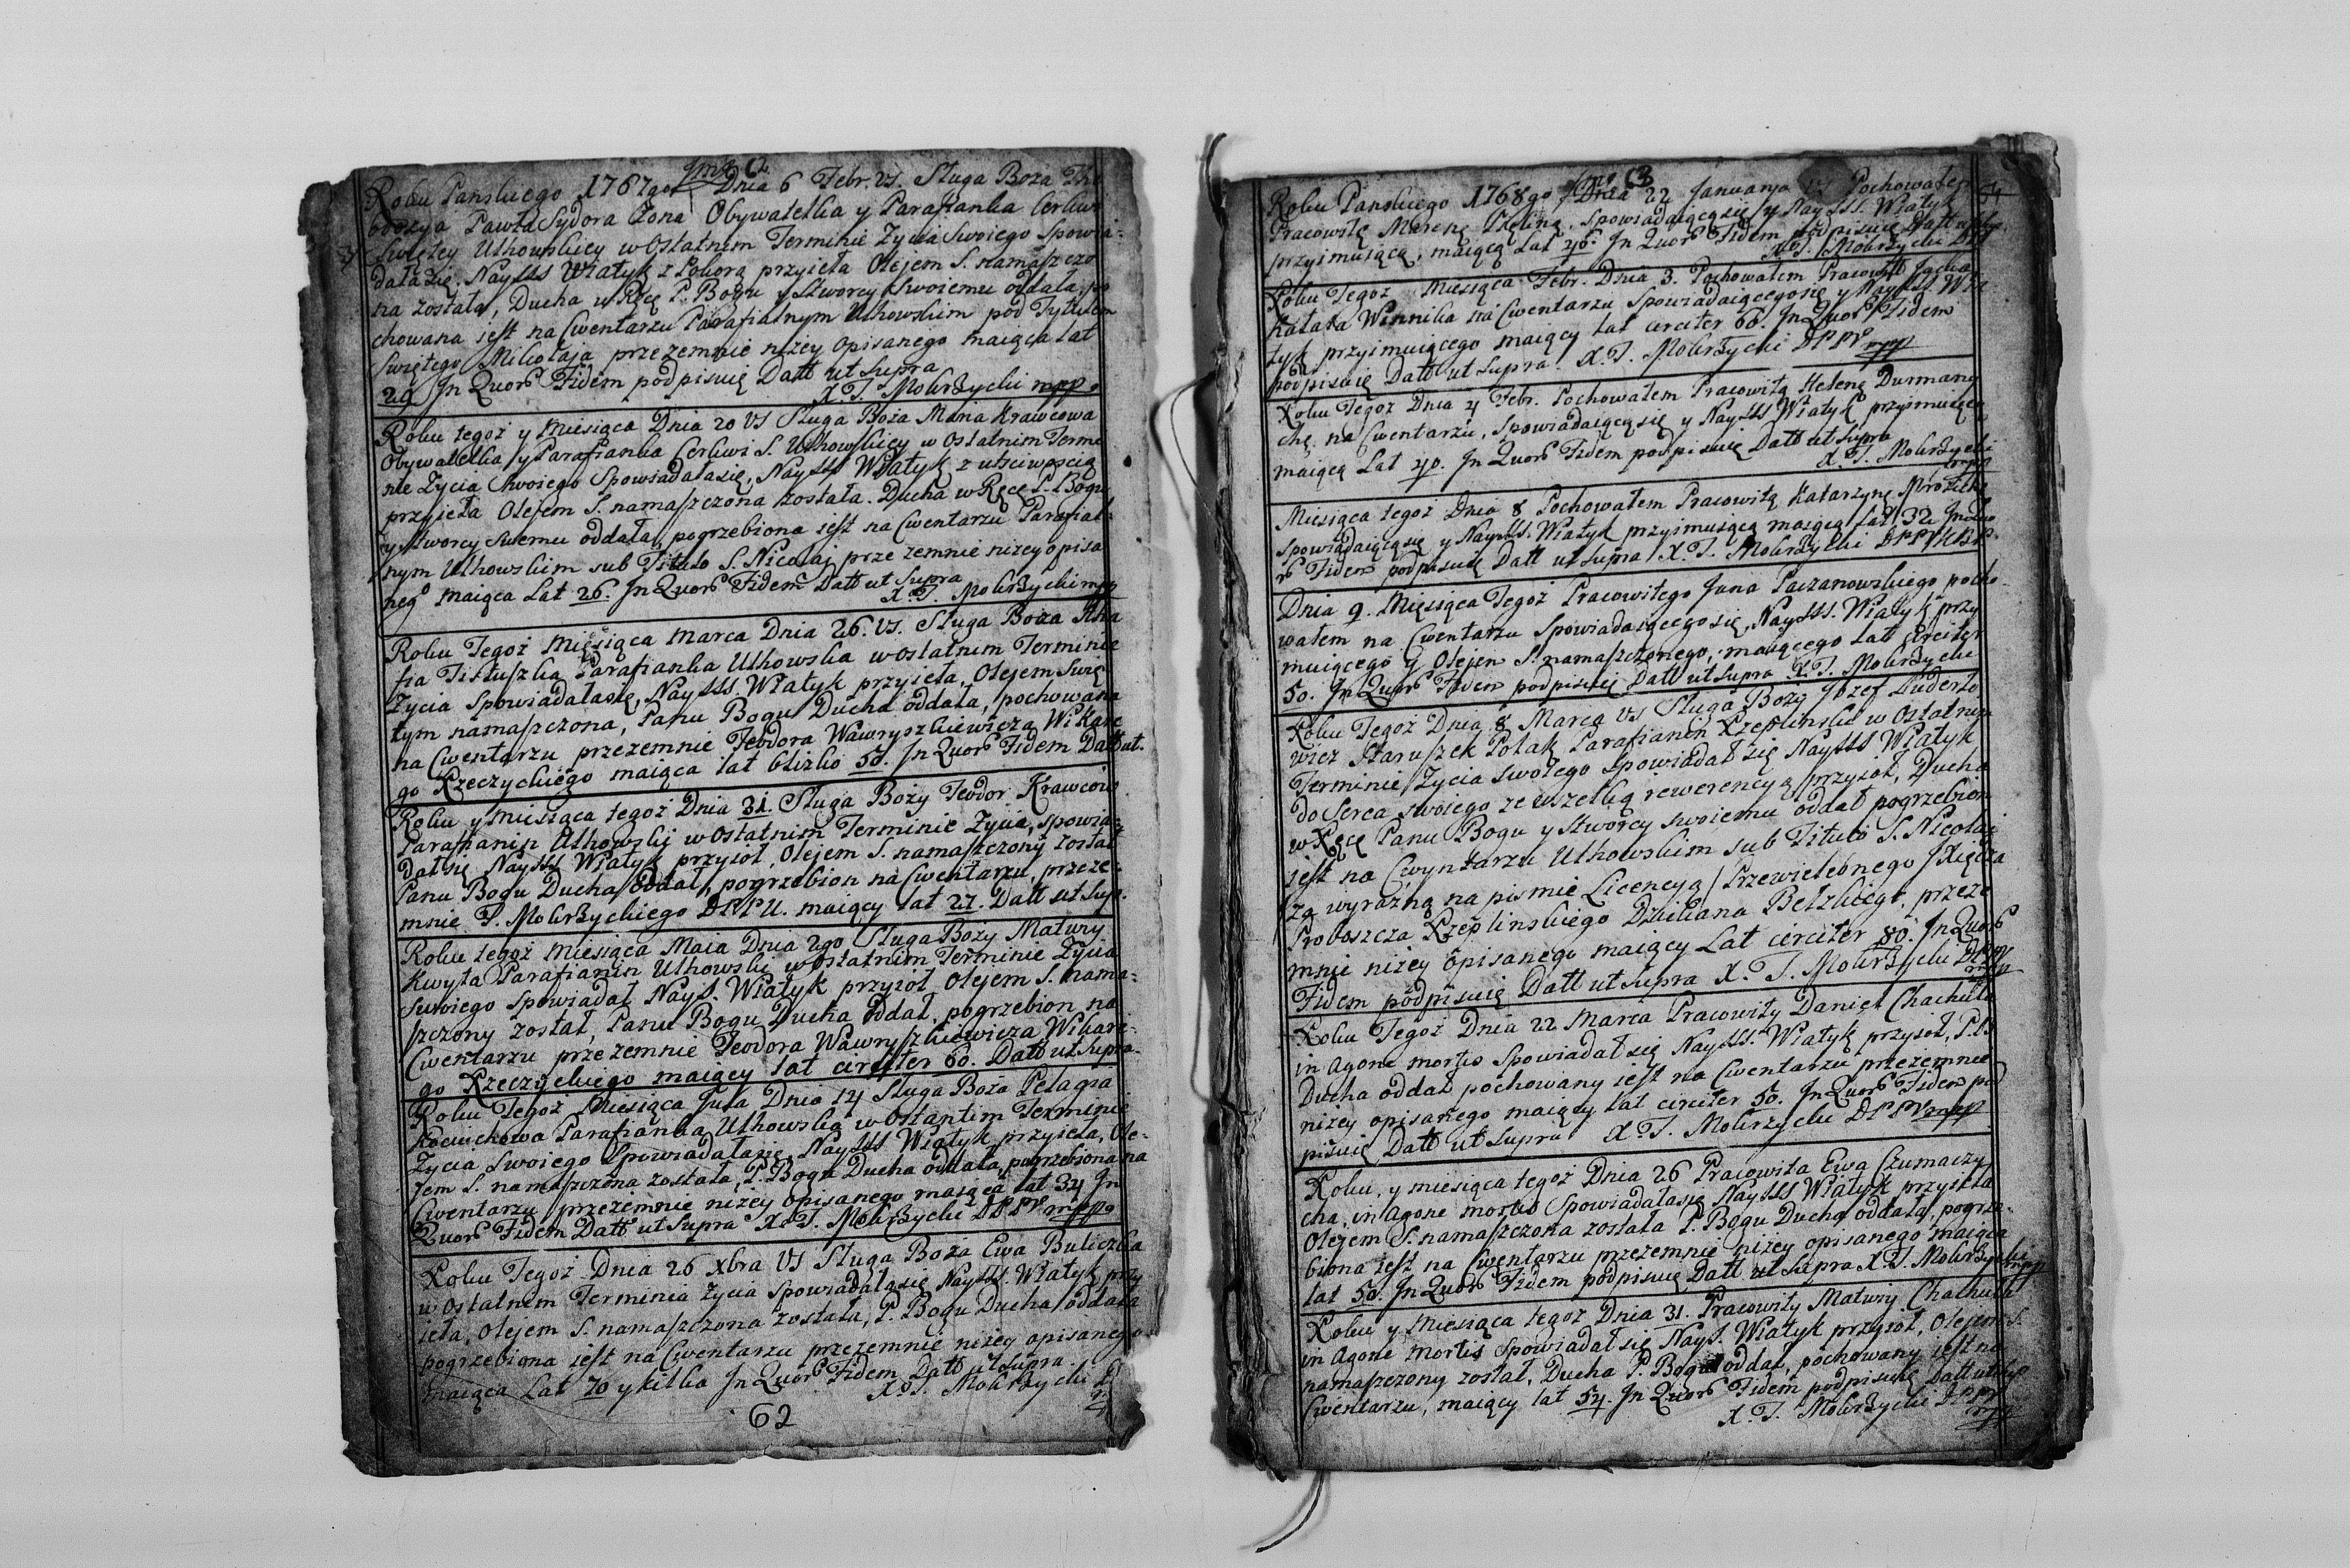 Roku Panskiego 1767go Dnia 6 Febr. VS. Sługa Boża The
odozya Pawła Sydora Zona Obywatelka y Parafianka Cerkwi
Swiętey Uthowskiey w Ostatnim Terminie Zycia Swoiego Spowia-
dała się. NaySSS Wiatyk z Pokorą przyięła Olejem S. namaszczo
na została, Ducha w Ręce P. Bogu y Stworcy Swoiemu oddała, po
chowana jest na Cwentarzu Parafialnym Uthowskim pod Tytułem
Swiętego Mikołaja przezemnie niżey opisanego maiąca lat
29 Jn Quor Fidem podpisuię Datt ut Supra
X. T. Mokrzycki mpp
Roku tegoż y Miesiąca Dnia 20 VS Sługa Boża Maria Krawcowa
Obywatelka y Parafianka Cerkwi S. Uthowskiey w Ostatnim Termi
nie Zycia Swoiego Spowiadałasię, NaySSS Wiatyk z uściwością
przyięła Olejem S. namaszczona została. Ducha w Ręce P. Bogu
y Stworcy Swemu oddała, pogrzebiona iest na Cwentarzu Parafial-
nym Uthowskim sub Titulo S. Nicolai prze zemnie niżey opisa
nego maiąca Lat 26. Jn Quor Fidem Datt ut Supra
X. T. Mokrzycki mpp
Roku Tegoż Miesiąca Marca Dnia 26. VS. Sługa Boża Aha
fia Parafianka Uthowska w ostatnim Terminie
Zycia Spowiadałasię, NaySSS. Wiatyk przyięła, Olejem Swię
tym namaszczona, Panu Bogu Ducha oddała, pochowana
na Cwentarzu przezemnie Teodora Wawryszkiewicza Wikare
go Rzeczyckiego maiąca lat blizko 50. Jn Quor Fidem Datt ut.
Roku y Miesiąca tegoż Dnia 31. Sługa Boży Teodor Krawcow
Parafianin Uthowski w Ostatnim Terminie Zycia, Spowia-
dał się NaySSS Wiatyk przyioł, Olejem S. namaszczony został
Panu Bogu Ducha Oddał, pogrzebion na Cwentarzu, przeze-
mnie T. Mokrzyckiego DPPU. maiący lat 27. Datt ut Sup.
Roku tegoż Miesiąca Maia Dnia 2go Sługa Boży Matwiy
Kwyta Parafianin Uthowski w Ostatnim Terminie Zycia
Swoiego Spowiadał NayS. Wiatyk przyioł Olejem S. nama-
szczony został, Panu Bogu Ducha Oddał, pogrzebion na
Cwentarzu przezemnie Teodora Wawryszkiewicza Wikare-
go Rzeczyckiego maiący lat circiter 60. Datt ut Supra.
Roku Tegoż Miesiąca Jula Dnia 14 Sługa Boża Pelagia
Parafianka Uthowska w Ostantim Terminie
Zycia Swoiego Spowiadałasię, NaySSS Wiatyk przyięła, Ole-
jem S. namaszczona została, P. Bogu Ducha oddała, pogrzebiona na
Cwentarzu przezemnie niżey opisanego maiąca lat 34 Jn
Quor Fidem Datt ut Supra X. T. Mokrzycki DPPV mpp
Roku Tegoż Dnia 26 Xbra VS Sługa Boża Ewa Buliczka
w Ostatnim Terminia Zycia Spowiadałasię NaySSS. Wiatyk przy
ięła, Olejem S. namaszczona została, P. Bogu Ducha oddała
pogrzebiona jest na Cwentarzu przezemnie niżey opisanego
maiąca Lat 70 y kilka Jn Quor Fidem Datt ut Supra.
X. T. Mokrzycki
62
Roku Panskiego 1768go Dnia 22 Januarya VS Pochowałem
Pracowitę Marenę spowiadaiącąsię y NaySSS. Wiatyk
przyimuiącą, maiącą Lat 46. Jn Quor Fidem podpisuię Datt ut
X. T. Mokrzycki
Roku Tegoż Miesiąca Febr. Dnia 3. Pochowałem Pracowit
Winnika na Cwentarzu Spowiadaiącegosię y NaySSS. Wia
tyk przyimuiącego maiący lat circiter 66. Jn Quor Fidem
podpisuię Datt ut Supra. X. T. Mokrzycki DPPV mpp
Roku Tegoż Dnia 4 Febr. Pochowałem Pracowitą Helenę Durmany
chę, na Cwentarzu, Spowiadaiącąsię y NaySSS Wiatyk przyimuiącą
maiącą Lat 40. Jn Quor Fidem podpisuię Datt ut Supra
X. T. Mokrzycki
mpp
Miesiąca tegoż Dnia 8 Pochowałem Pracowitą Katarzynę
Spowiadaiącąsię y NaySSS. Wiatyk przyimuiącą maiącą Lat 32 Jn Quo
r Fidem podpisuię Datt ut Supra X. T. Mokrzycki
Dnia 9. Miesiąca Tegoż Pracowitego Jana Paczanowskiego pocho-
wałem na Cwentarzu Spowiadaiącegosię, NaySSS. Wiatyk przy
muiącego y Olejem S. namaszczonego, maiącego Lat circiter
50. Jn Quor Fidem podpisuię Datt ut Supra X. T. Mokrzycki
Roku Tegoż Dnia 8 Marca VS Sługa Boży Jozef Duderko
wicz Staruszek Polak Parafianin Rzeplinski w Ostatnim
Terminie Zycia swoiego Spowiadał się NaySSS Wiatyk
do Serca swoiego ze wszelką rewerencyą przyioł, Ducha
w Ręce Panu Bogu y Stworcy swoiemu oddał pogrzebion
jest na Cwyntarzu Uthowskim sub Titulo S. Nicolai
za wyrazną na pismie Licencyą Przewielebnego Xiędza
Proboszcza Rzeplinskiego Dziekana Bełzkiego, przeze
mnie niżey opisanego maiący Lat circiter 80. Jn Quor
Fidem podpisuię Datt ut Supra X. T. Mokrzycki DPPV
mpp
Roku Tegoż Dnia 22 Marca Pracowity Daniel Chachuła
in agone mortis Spowiadał się NaySSS. Wiatyk przyioł, P. B.
Ducha oddał pochowany iest na Cwentarzu przezemnie
niżey opisanego maiący lat circiter 50. Jn Quor Fidem pod
pisuię Datt ut Supra X. T. Mokrzycki DPPV mpp
Roku, y miesiąca tegoż Dnia 26 Pracowita Ewa Czumaczy
cha, in agone mortis Spowiadałasię NaySSS Wiatyk przyięła
Olejem S. namaszczona została P. Bogu Ducha oddała, pogrze-
biona iest na Cwentarzu przezemnie niżey opisanego maiąca
lat 50. Jn Quor Fidem podpisuię Datt ut Supra X. T. Mokrzycki mpp
Roku y Miesiąca tegoż Dnia 31. Pracowity Matwiy Chachuła
in agone mortis Spowiadał się NayS. Wiatyk przyioł, Olejem S.
namaszczony został, Ducha P. Bogu oddał, pochowany iest na
Cwentarzu, maiący lat 54. Jn Quor Fidem podpisuię Datt ut Sup
X. T. Mokrzycki DPPV
mpp